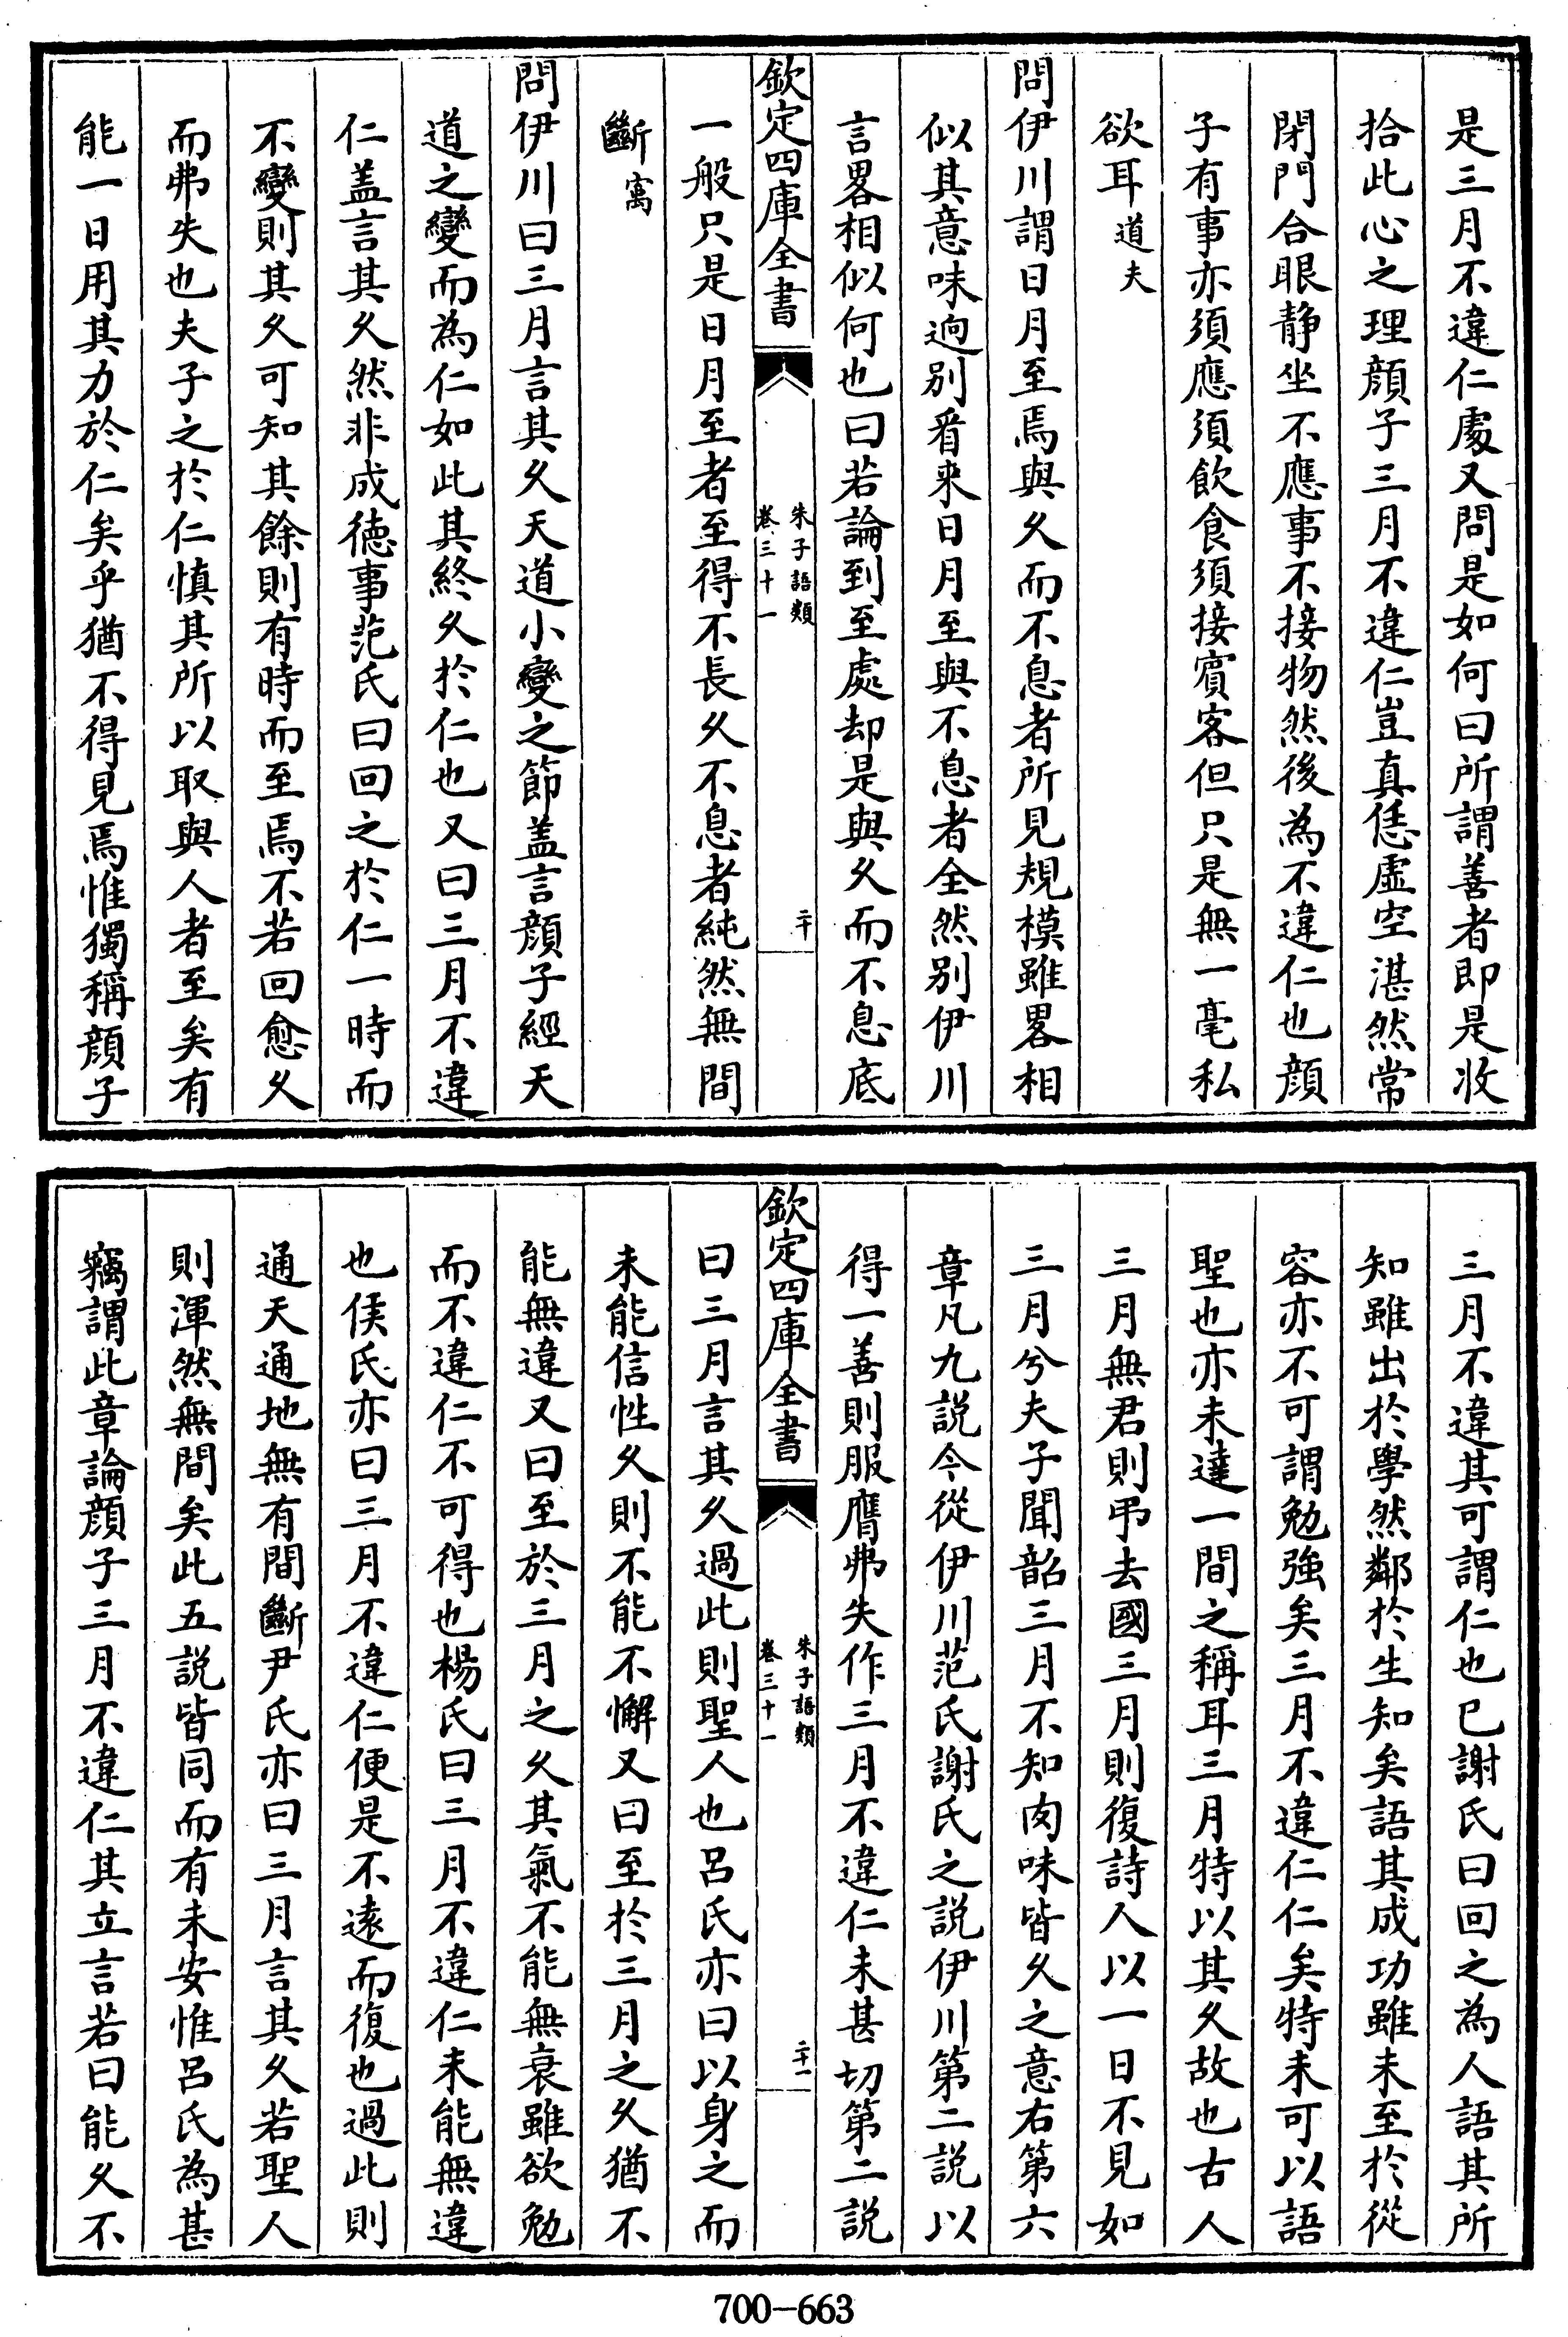 是三月不違仁處又問是如何曰所謂善者即是收
拾此心之理顔子三月不違仁豈真恁虛空湛然常
閉門合眼静坐不應事不接物然後為不違仁也顔
子有事亦須應須飲食須接賓客但只是無一毫私
欲耳道夫
問伊川謂日月至焉與久而不息者所見規模雖畧相
似其意味迥别㸔来日月至與不息者全然别伊川
言畧相似何也曰若論到至處却是與久而不息底
欽定四庫全書
朱子語類
卷三十一
二十
一般只是日月至者至得不長久不息者純然無間
斷㝢
問伊川曰三月言其久天道小變之節盖言顔子經天
道之變而為仁如此其終久於仁也又曰三月不違
仁盖言其久然非成徳事范氏曰回之於仁一時而
不變則其久可知其餘則有時而至焉不若回愈久
而弗失也夫子之於仁慎其所以取與人者至矣有
能一日用其力於仁矣乎猶不得見焉惟獨稱顔子
三月不違其可謂仁也已謝氏曰回之為人語其所
知雖出於學然鄰於生知矣語其成功雖未至於從
容亦不可謂勉強矣三月不違仁仁矣特未可以語
聖也亦未達一間之稱耳三月特以其久故也古人
三月無君則弔去國三月則復詩人以一日不見如
三月兮夫子聞韶三月不知肉味皆久之意右第六
章凡九説今從伊川范氏謝氏之説伊川第二説以
得一善則服膺弗失作三月不違仁未甚切第二説
欽定四庫全書
朱子語類
卷三十一
二十一
曰三月言其久過此則聖人也呂氏亦曰以身之而
未能信性久則不能不懈又曰至於三月之久猶不
能無違又曰至於三月之久其氣不能無衰雖欲勉
而不違仁不可得也楊氏曰三月不違仁未能無違
也侯氏亦曰三月不違仁便是不逺而復也過此則
通天通地無有間斷尹氏亦曰三月言其久若聖人
則渾然無間矣此五説皆同而有未安惟呂氏為甚
竊謂此章論顔子三月不違仁其立言若曰能久不
700-663